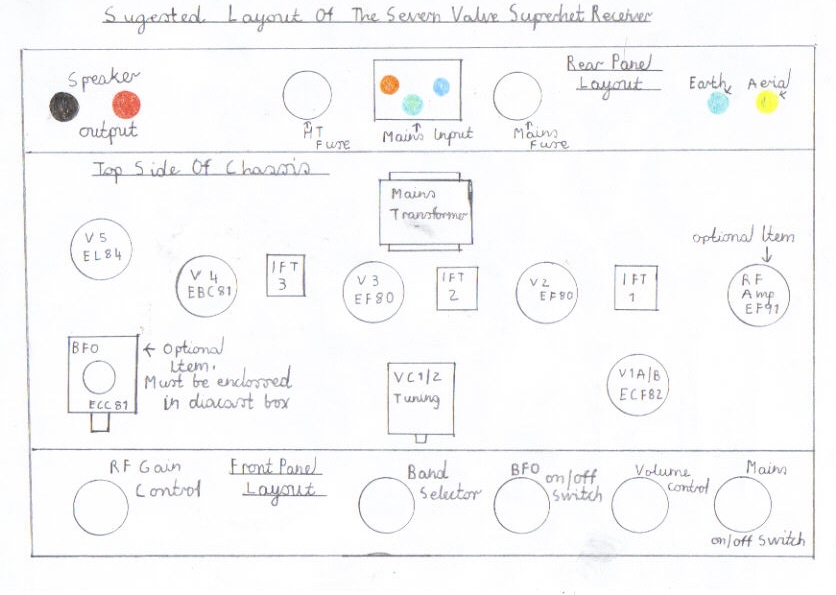 Sugested Layout Of The Seven Valve Superhet Receiver
Speaker
output
HT
Fuse
Mains Input
Mains
Fuse
Rear Panel
Layout
Earth
Aerial
Top Side Of Chassis
Mains
Transformer
V5
EL84
V4
EBC81
IFT
3
V3
EF80
IFT
2
V2
EF80
IFT
1
optional Item
RF
Amp
EF91
BFO
ECC81
← Optional
Item.
Must be enclossed
in diacast box
VC1/2
Tuning
V1A/B
ECF82
RF Gain
Control
Front Panel
Layout
Band
Selector
BFO
on/off
Switch
Volume
control
Mains
on/off Switch